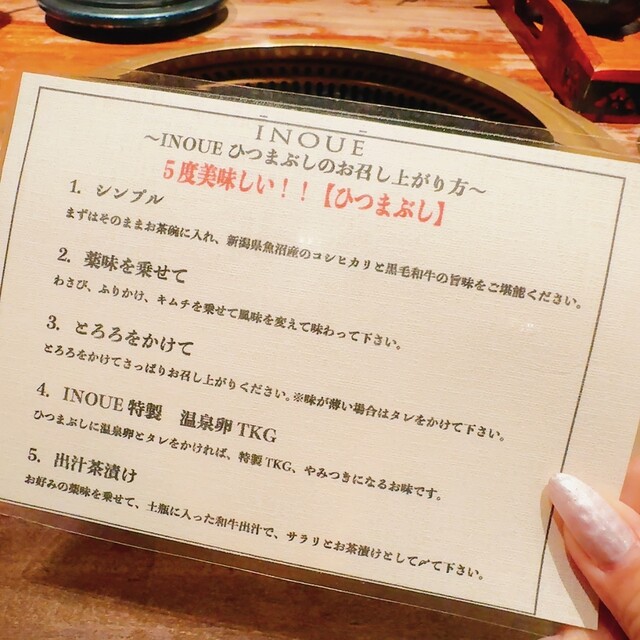 INOUE
～INOUE ひつまぶしのお召し上がり方～
５度美味しい！！【ひつまぶし】
1. シンプル
まずはそのままお茶碗に入れ、新潟県魚沼産のコシヒカリと黒毛和牛の旨味をご堪能ください。
2. 薬味を乗せて
わさび、ふりかけ、キムチを乗せて風味を変えて味わって下さい。
3. とろろをかけて
とろろをかけてさっぱりお召し上がりください。※味が薄い場合はタレをかけて下さい。
4. INOUE 特製　温泉卵 TKG
ひつまぶしに温泉卵とタレをかければ、特製 TKG、やみつきになるお味です。
5. 出汁茶漬け
お好みの薬味を乗せて、土瓶に入った和牛出汁で、サラリとお茶漬けとして〆て下さい。